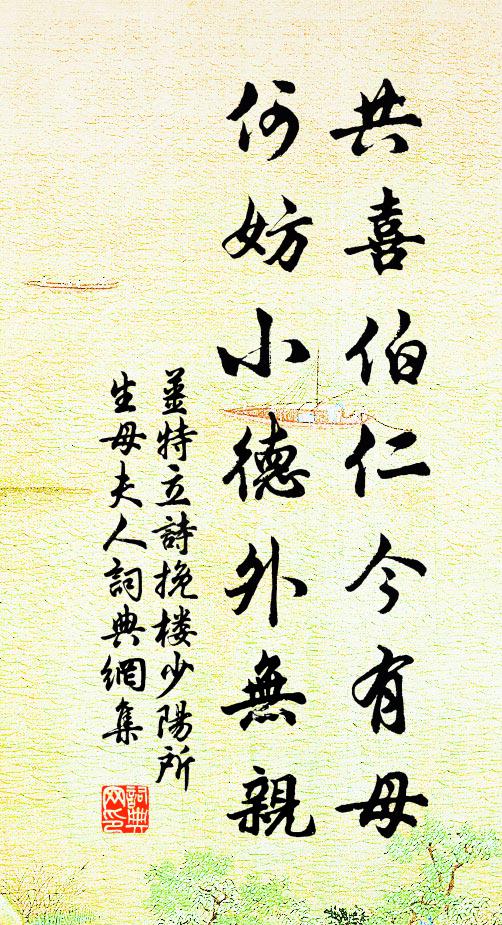 共喜伯仁今有母
何妨小德外無親
姜特立詩挽楼少陽所
生母夫人詞典網集
詞典
网印